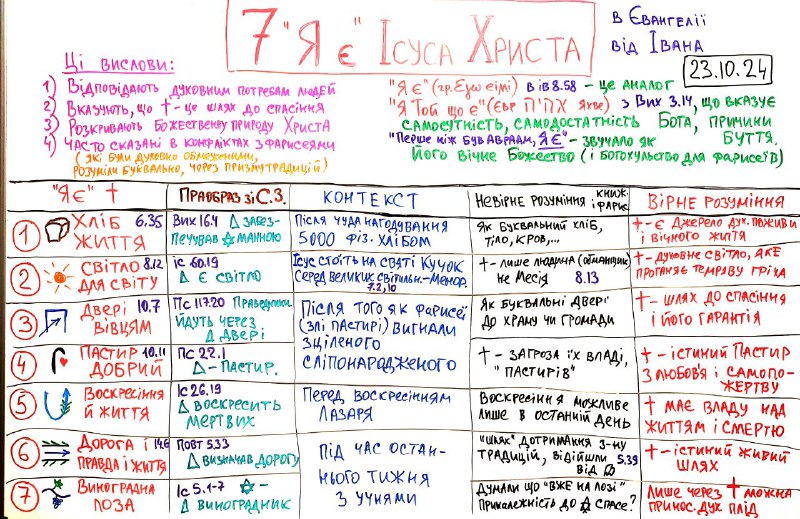 7 "Я Є" Ісуса Христа
в Євангелії
від Івана
23.10.24
Ці вислови:
1) Відповідають духовним потребам людей
2) Вказують, що ✝ - це шлях до спасіння
3) Розкривають Божественну природу Христа
4) Часто сказані в конфліктах з фарисеями
(які були духовно обмеженими,
розуміли буквально, через призму традицій)
"Я є" (гр. Εγω ειμι) в Ів 8.58 - це аналог
"Я Той що є" (євр יהוה Яхве) з Вих 3.14, що вказує
самосутність, самодостатність Бога, причини
буття.
"Перше ніж був Авраам, Я Є" - звучало як
Його вічне Божество (і богохульство для фарисеїв)
"Я Є" ✝
Праобраз зі С.З.
Контекст
Невірне розуміння книж. фарис.
Вірне розуміння
1 Хліб 6.35
життя
Вих 16.4 △ забез-
печував ✡ манною
Після чуда нагодування
5000 фіз. хлібом
Як буквальний хліб,
тіло, кров,...
✝ - є Джерело дух. поживи
і вічного життя
2 Світло 8.12
для світу
Іс 60.19
△ є світло
Ісус стоїть на святі Кучок
серед великих світильн.-менор.
7.2,10
✝ - лише людина (обманщик)
не Месія 8.13
✝ - духовне світло, яке
проганяє темряву гріха
3 Двері 10.7
вівцям
Пс 117.20 Праведники
йдуть через
△ двері
Після того як фарисеї
(злі пастирі) вигнали
зціленого
сліпонародженого
Як буквальні двері
до храму чи громади
✝ - шлях до спасіння
і його гарантія
4 Пастир 10.11
добрий
Пс 22.1
△ - пастир.
✝ - загроза їх владі,
"пастирів"
✝ - істиний Пастир
з любов'я і самопо-
жертву
5 Воскресіння
й життя
Іс 26.19
△ воскресить
мертвих
Перед воскресінням
Лазаря
Воскресіння можливе
лише в останній день
✝ має владу над
життям і смертю
6 Дорога і 14.6
правда і життя
Повт 5.33
△ визначав дорогу
Під час остан-
нього тижня
з учнями
"шлях" дотримання з-ну
традицій, відійшли 5.39
від
✝ - істиний живий
шлях
7 Виноградна
лоза
Іс 5.1-7 ✡ -
△ виноградник
Думали що "вже на лозі"
Приналежність до ✡ спасе?
лише через ✝ можна
принос. дух. плід